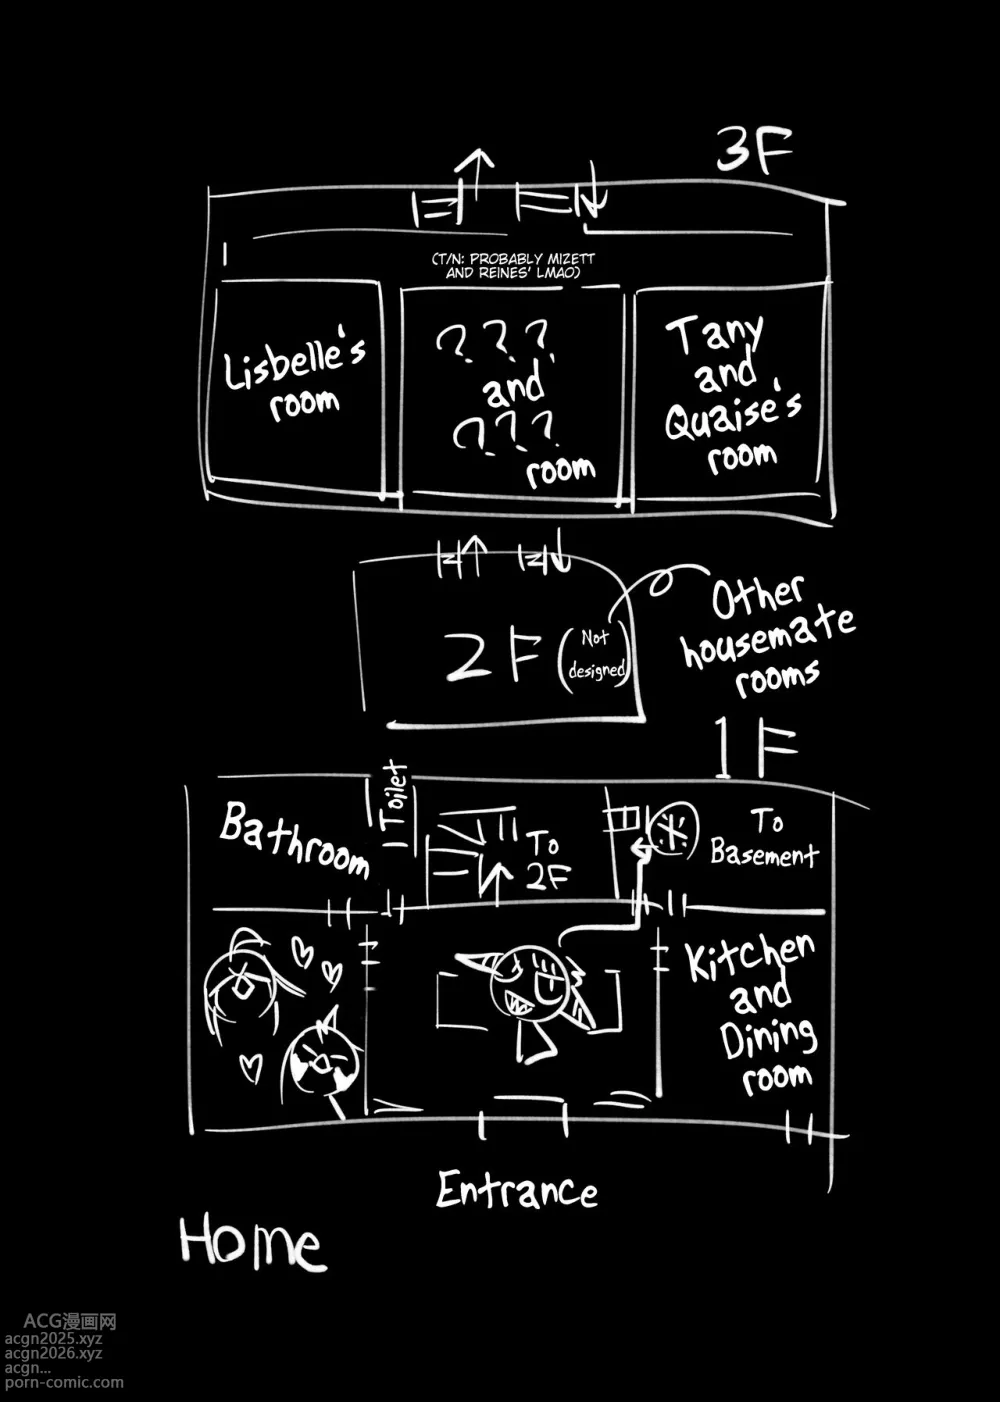 3F
(T/N: PROBABLY MIZETT
AND REINES' LMAO)
Lisbelle's
room
???
and
???
room
Tany
and
Quaise's
room
2F
(Not
designed)
Other
housemate
rooms
1F
Bathroom
Toilet
To
2F
To
Basement
Kitchen
and
Dining
room
Entrance
Home
ACG漫画网
acgn2025.xyz
acgn2026.xyz
acgn...
porn-comic.com